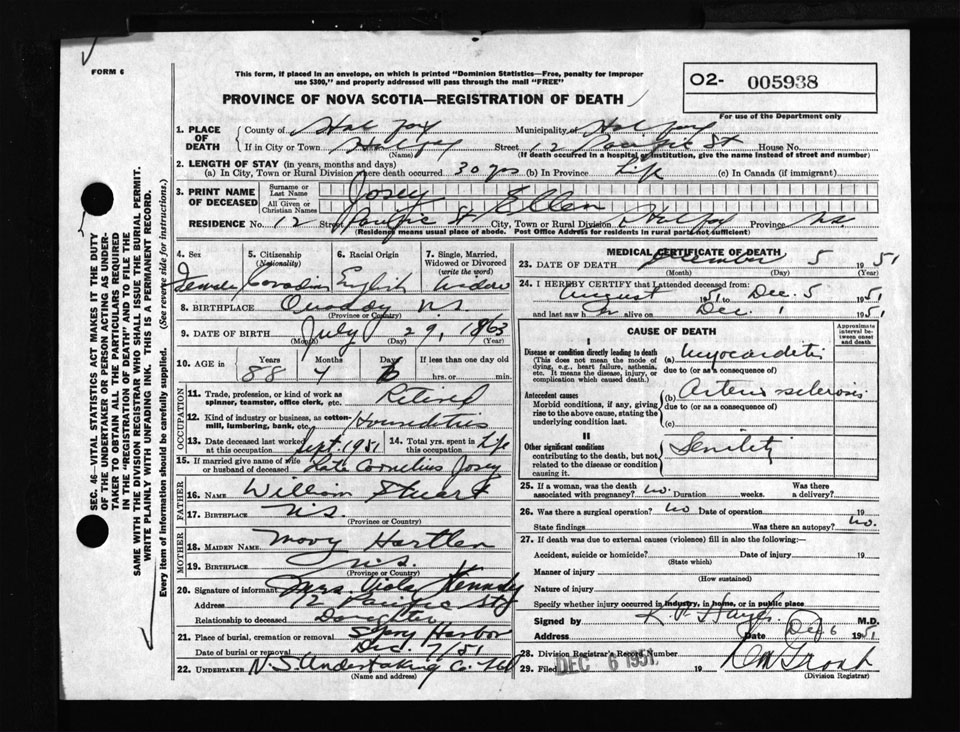 FORM 6
This form, if placed in an envelope, on which is printed "Dominion Statistics—Free, penalty for improper
use $300," and properly addressed will pass through the mail "FREE"
PROVINCE OF NOVA SCOTIA—REGISTRATION OF DEATH
O2- 005938
For use of the Department only
SEC. 46—VITAL STATISTICS ACT MAKES IT THE DUTY
OF THE UNDERTAKER OR PERSON ACTING AS UNDER-
TAKER TO OBTAIN ALL THE PARTICULARS REQUIRED
IN THE "REGISTRATION OF DEATH" AND TO FILE THE
SAME WITH THE DIVISION REGISTRAR WHO SHALL ISSUE THE BURIAL PERMIT.
WRITE PLAINLY WITH UNFADING INK. THIS IS A PERMANENT RECORD.
Every item of information should be carefully supplied. (See reverse side for instructions.)
1. PLACE OF DEATH
County of Halifax Municipality of Halifax
If in City or Town Halifax Street 12 Pacific St House No.
(Name) (If death occurred in a hospital or institution, give the name instead of street and number)
2. LENGTH OF STAY (in years, months and days)
(a) In City, Town or Rural Division where death occurred 30 yrs (b) In Province Life (c) In Canada (if immigrant)
3. PRINT NAME OF DECEASED
Surname or Last Name Josey
All Given or Christian Names Ellen
RESIDENCE No. 12 Street Pacific St City, Town or Rural Division Halifax Province N.S.
(Residence means usual place of abode. Post Office Address for residents in rural parts not sufficient)
4. Sex Female
5. Citizenship (Nationality) Canadian
6. Racial Origin English
7. Single, Married, Widowed or Divorced (write the word) Widow
8. BIRTHPLACE N.S.
(Province or Country)
9. DATE OF BIRTH July 29, 1863
(Month) (Day) (Year)
10. AGE in Years 88 Months 4 Days 6 If less than one day old hrs. or min.
OCCUPATION
11. Trade, profession, or kind of work as spinner, teamster, office clerk, etc. Retired
12. Kind of industry or business, as cotton-mill, lumbering, bank, etc.
13. Date deceased last worked at this occupation Sept. 1951
14. Total yrs. spent in this occupation Life
15. If married give name of wife or husband of deceased Late Cornelius Josey
FATHER
16. NAME William Stuart
17. BIRTHPLACE N.S.
(Province or Country)
MOTHER
18. MAIDEN NAME Mary Hartlen
19. BIRTHPLACE N.S.
(Province or Country)
20. Signature of informant Mrs. Viola Kennedy
Address 12 Pacific St
Relationship to deceased Daughter
21. Place of burial, cremation or removal Harbor
Date of burial or removal Dec. 7/51
22. UNDERTAKER N.S. Undertaking Co. Ltd
(Name and address)
MEDICAL CERTIFICATE OF DEATH
23. DATE OF DEATH December 5 1951
(Month) (Day) (Year)
24. I HEREBY CERTIFY that I attended deceased from:
August 1951 to Dec. 5 1951
and last saw h er alive on Dec. 1 1951
CAUSE OF DEATH
Approximate interval between onset and death
I
Disease or condition directly leading to death
(This does not mean the mode of dying, e.g., heart failure, asthenia, etc. It means the disease, injury, or complication which caused death.)
(a) Myocarditis
due to (or as a consequence of)
Antecedent causes
Morbid conditions, if any, giving rise to the above cause, stating the underlying condition last.
(b) Arterio sclerosis
due to (or as a consequence of)
(c)
II
Other significant conditions
contributing to the death, but not related to the disease or condition causing it.
Senility
25. If a woman, was the death associated with pregnancy? no. Duration weeks. Was there a delivery?
26. Was there a surgical operation? no Date of operation 19
State findings Was there an autopsy? no.
27. If death was due to external causes (violence) fill in also the following:—
Accident, suicide or homicide? Date of injury 19
(State which)
Manner of injury
(How sustained)
Nature of injury
Specify whether injury occurred in industry, in home, or in public place
Signed by M.D.
Address Date Dec 6 1951
28. Division Registrar's Record Number
29. Filed DEC 6 1951 19
(Division Registrar)